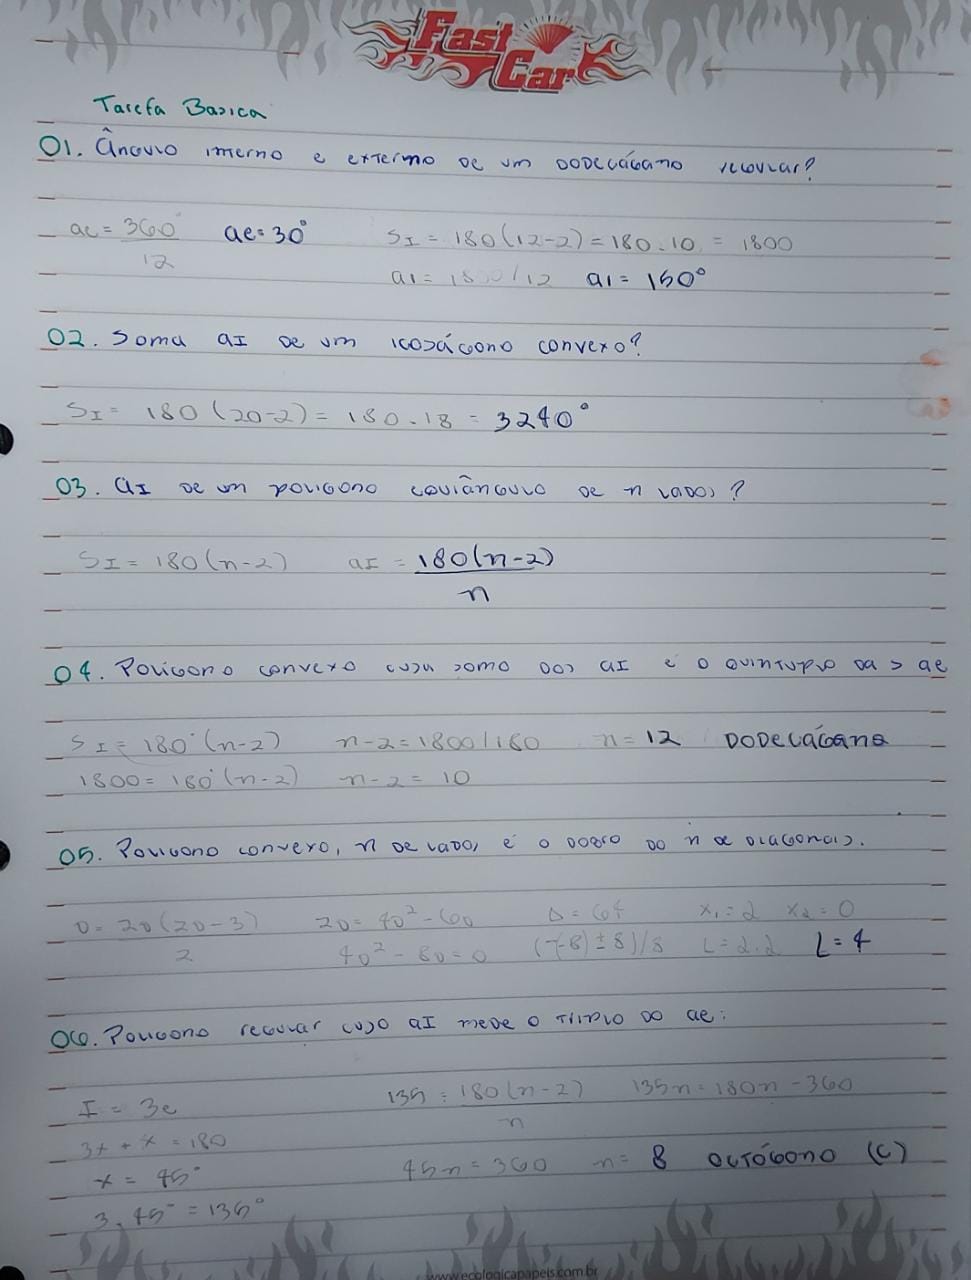 Fast
Car
Tarefa Basica
01. Ângulo interno e externo de um dodecágano regular?
ae = 360° / 12   ae = 30°   SI = 180(12-2) = 180.10 = 1800
aI = 1800/12   aI = 150°
02. Soma aI de um icoságono convexo?
SI = 180(20-2) = 180.18 = 3240°
03. aI de um poligono equiângulo de n lados?
SI = 180(n-2)   aI = 180(n-2) / n
04. Poligono convexo cuja somo dos aI é o quintuplo das ae
SI = 180°(n-2)   n-2 = 1800/180   n = 12 Dodecágano
1800 = 180°(n-2)   n-2 = 10
05. Poligono convexo, n de lados é o dobro do n de diagonais.
D = 2D(2D-3) / 2   2D = 4D² - 6D   Δ = 64   x₁ = 2   x₂ = 0
4D² - 8D = 0   (-(-8) ± 8)/8   L = 2.2   L = 4
06. Poligono regular cujo aI mede o triplo do ae:
I = 3e   135 = 180(n-2) / n   135n = 180n - 360
3x + x = 180
x = 45°   45n = 360   n = 8 octógono (C)
3.45° = 135°
www.ecologicapapeis.com.br